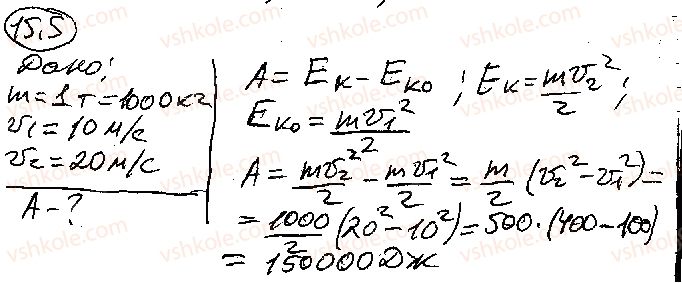 15.5
Дано:
m = 1 т = 1000 кг
v₁ = 10 м/с
v₂ = 20 м/с
A - ?
A = Eк - Eк₀ ; Eк = mv₂²/2 ;
Eк₀ = mv₁²/2
A = mv₂²/2 - mv₁²/2 = m/2 (v₂² - v₁²) =
= 1000/2 (20² - 10²) = 500·(400 - 100)
= 150000 Дж